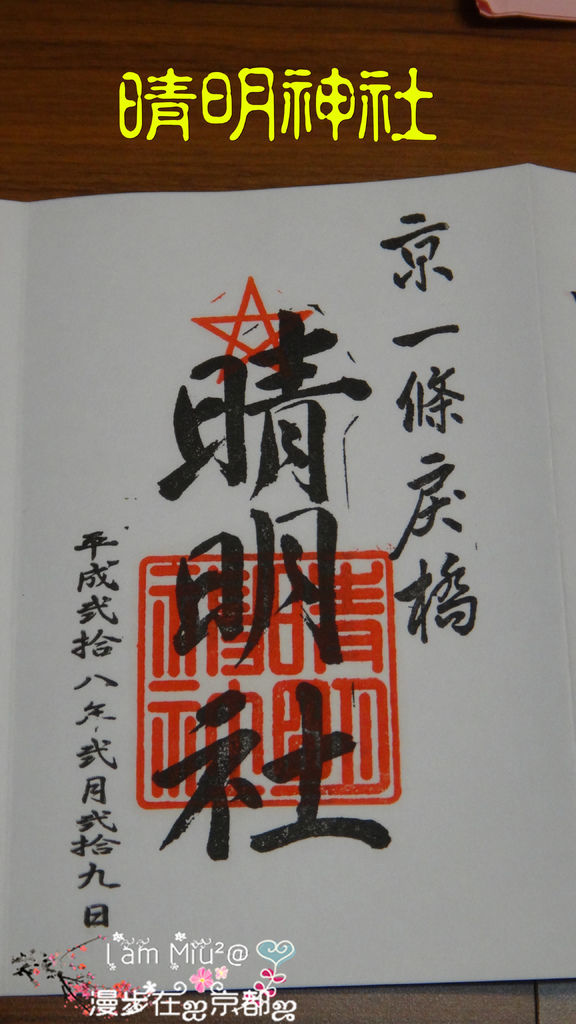 晴明神社
京一條戻橋
晴明社
晴明神社
平成弐拾八年弐月弐拾九日
Lam Miu²@
漫步在ஐ京都ஐ